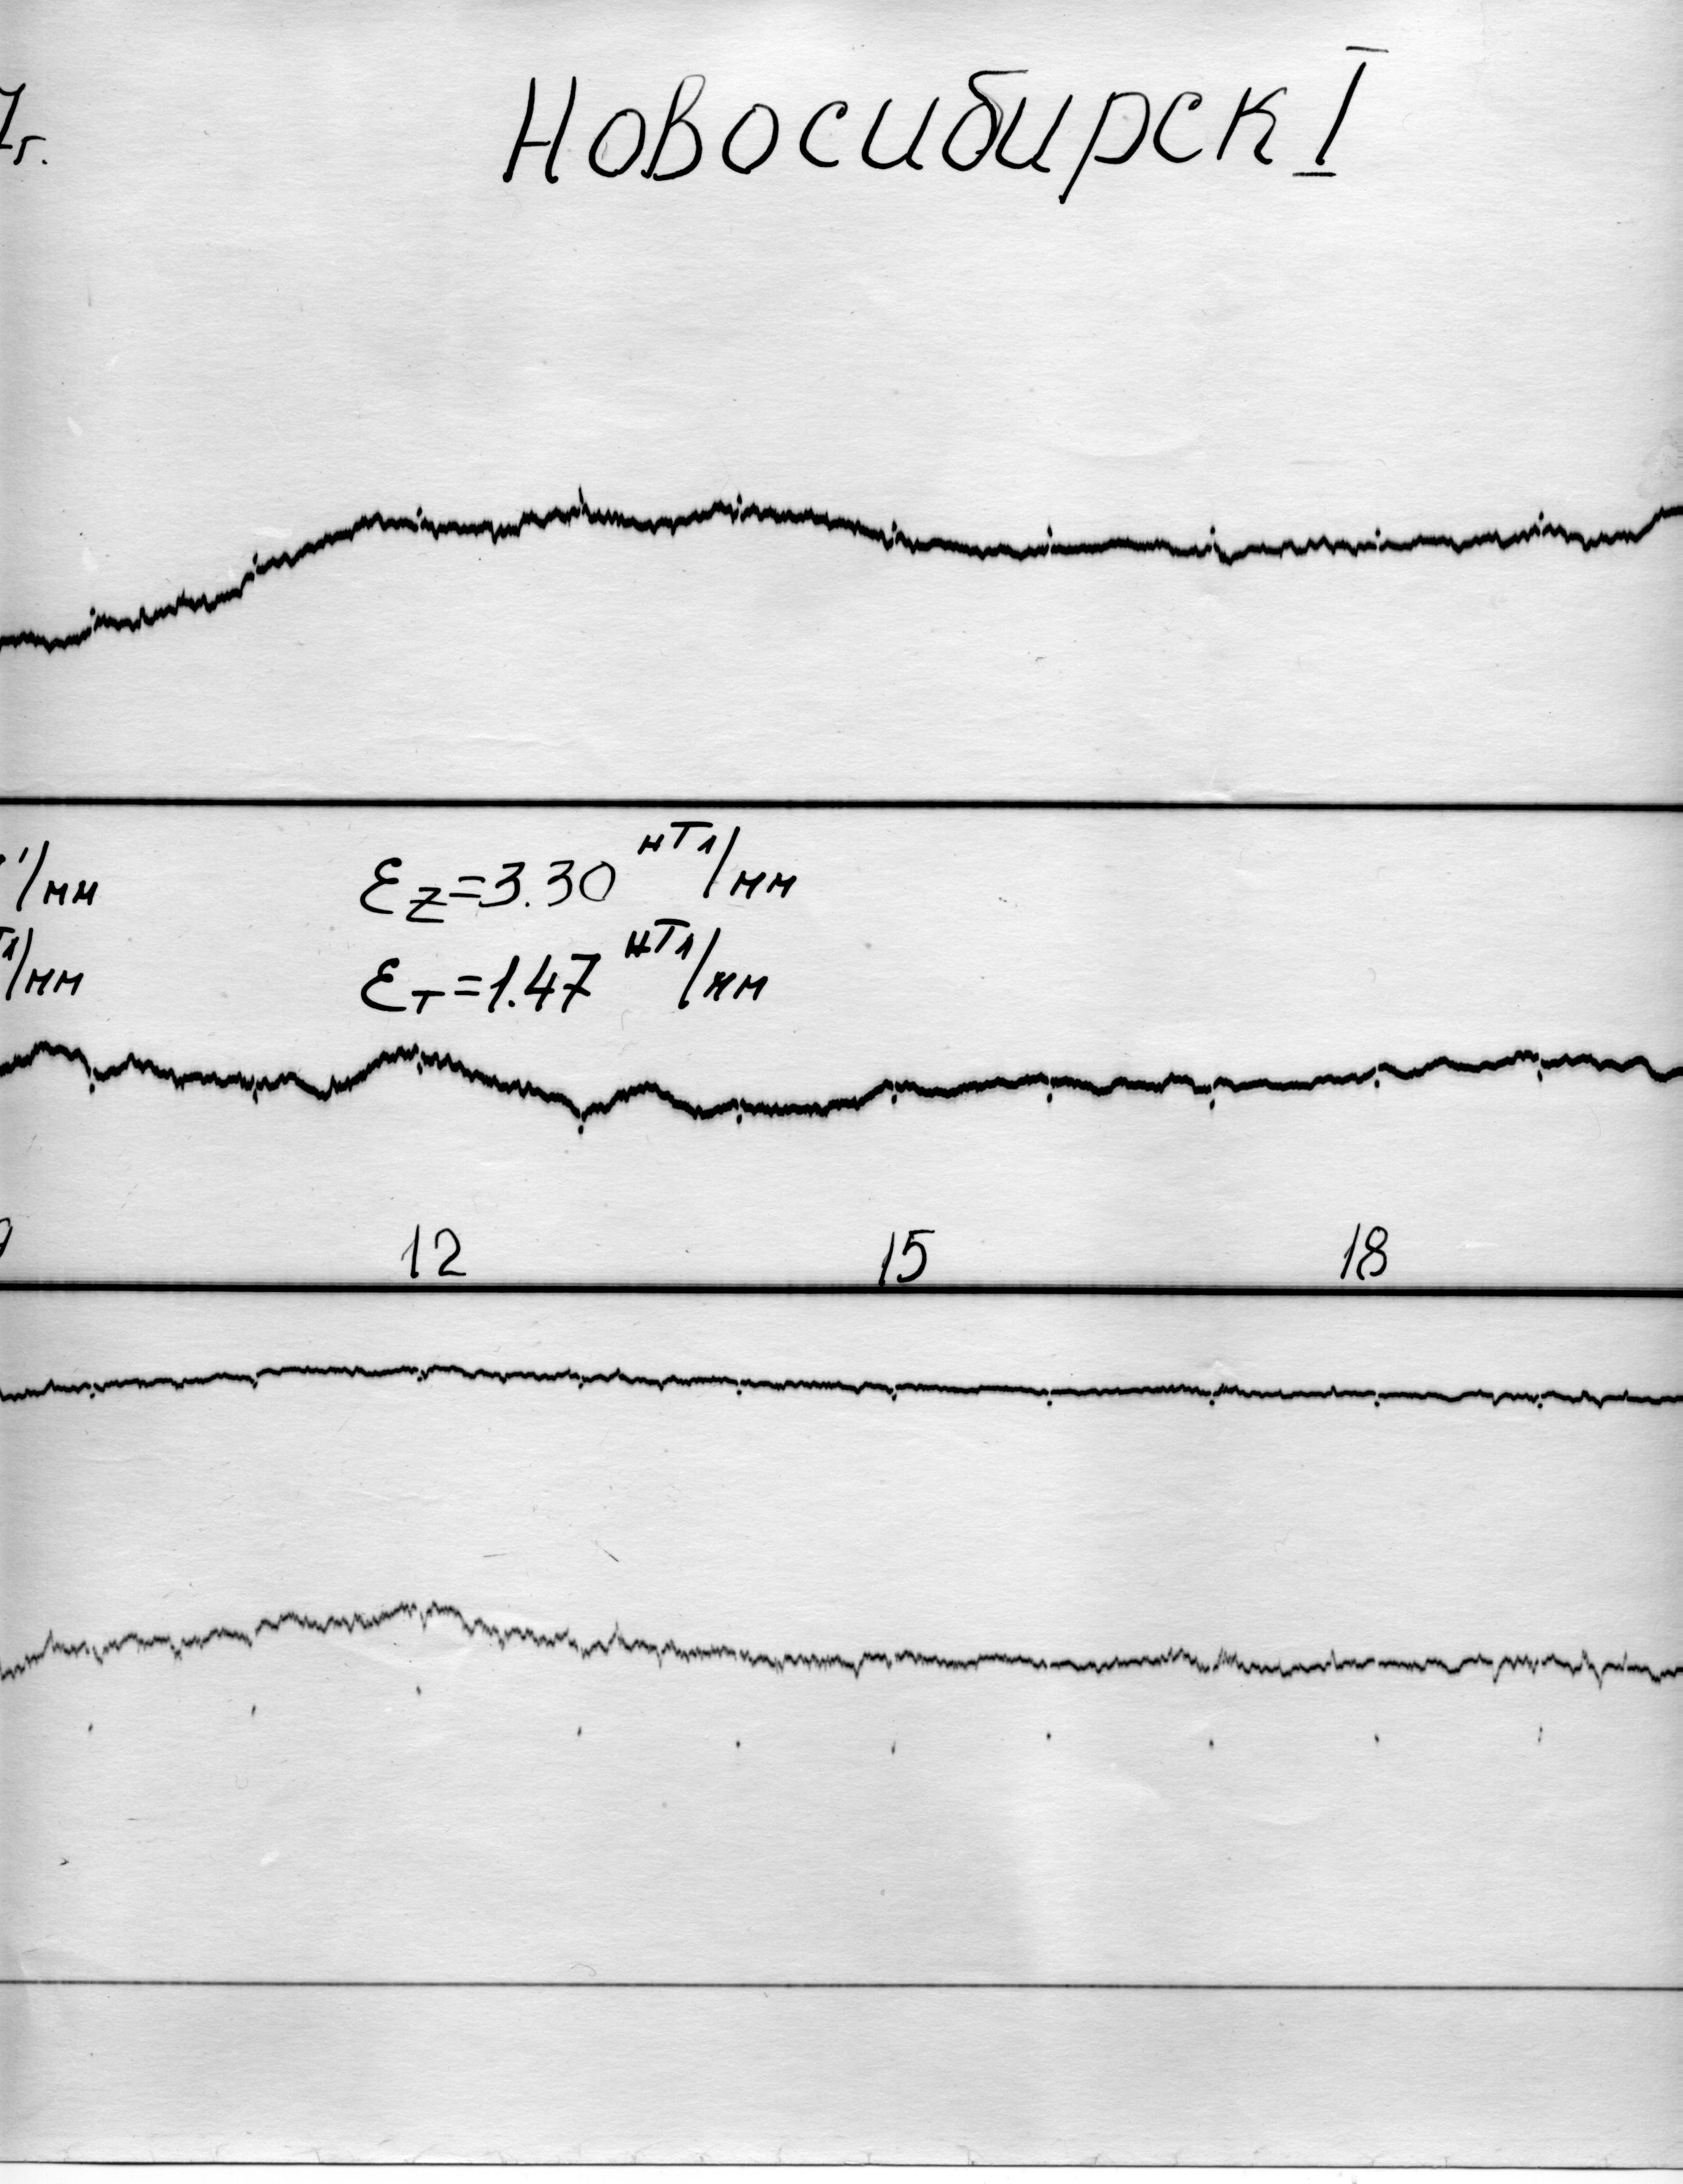 7г.
Новосибирск I
'/мм
Ɛz=3.30 нТл/мм
Тл/мм
Ɛт=1.47 нТл/мм
12
15
18